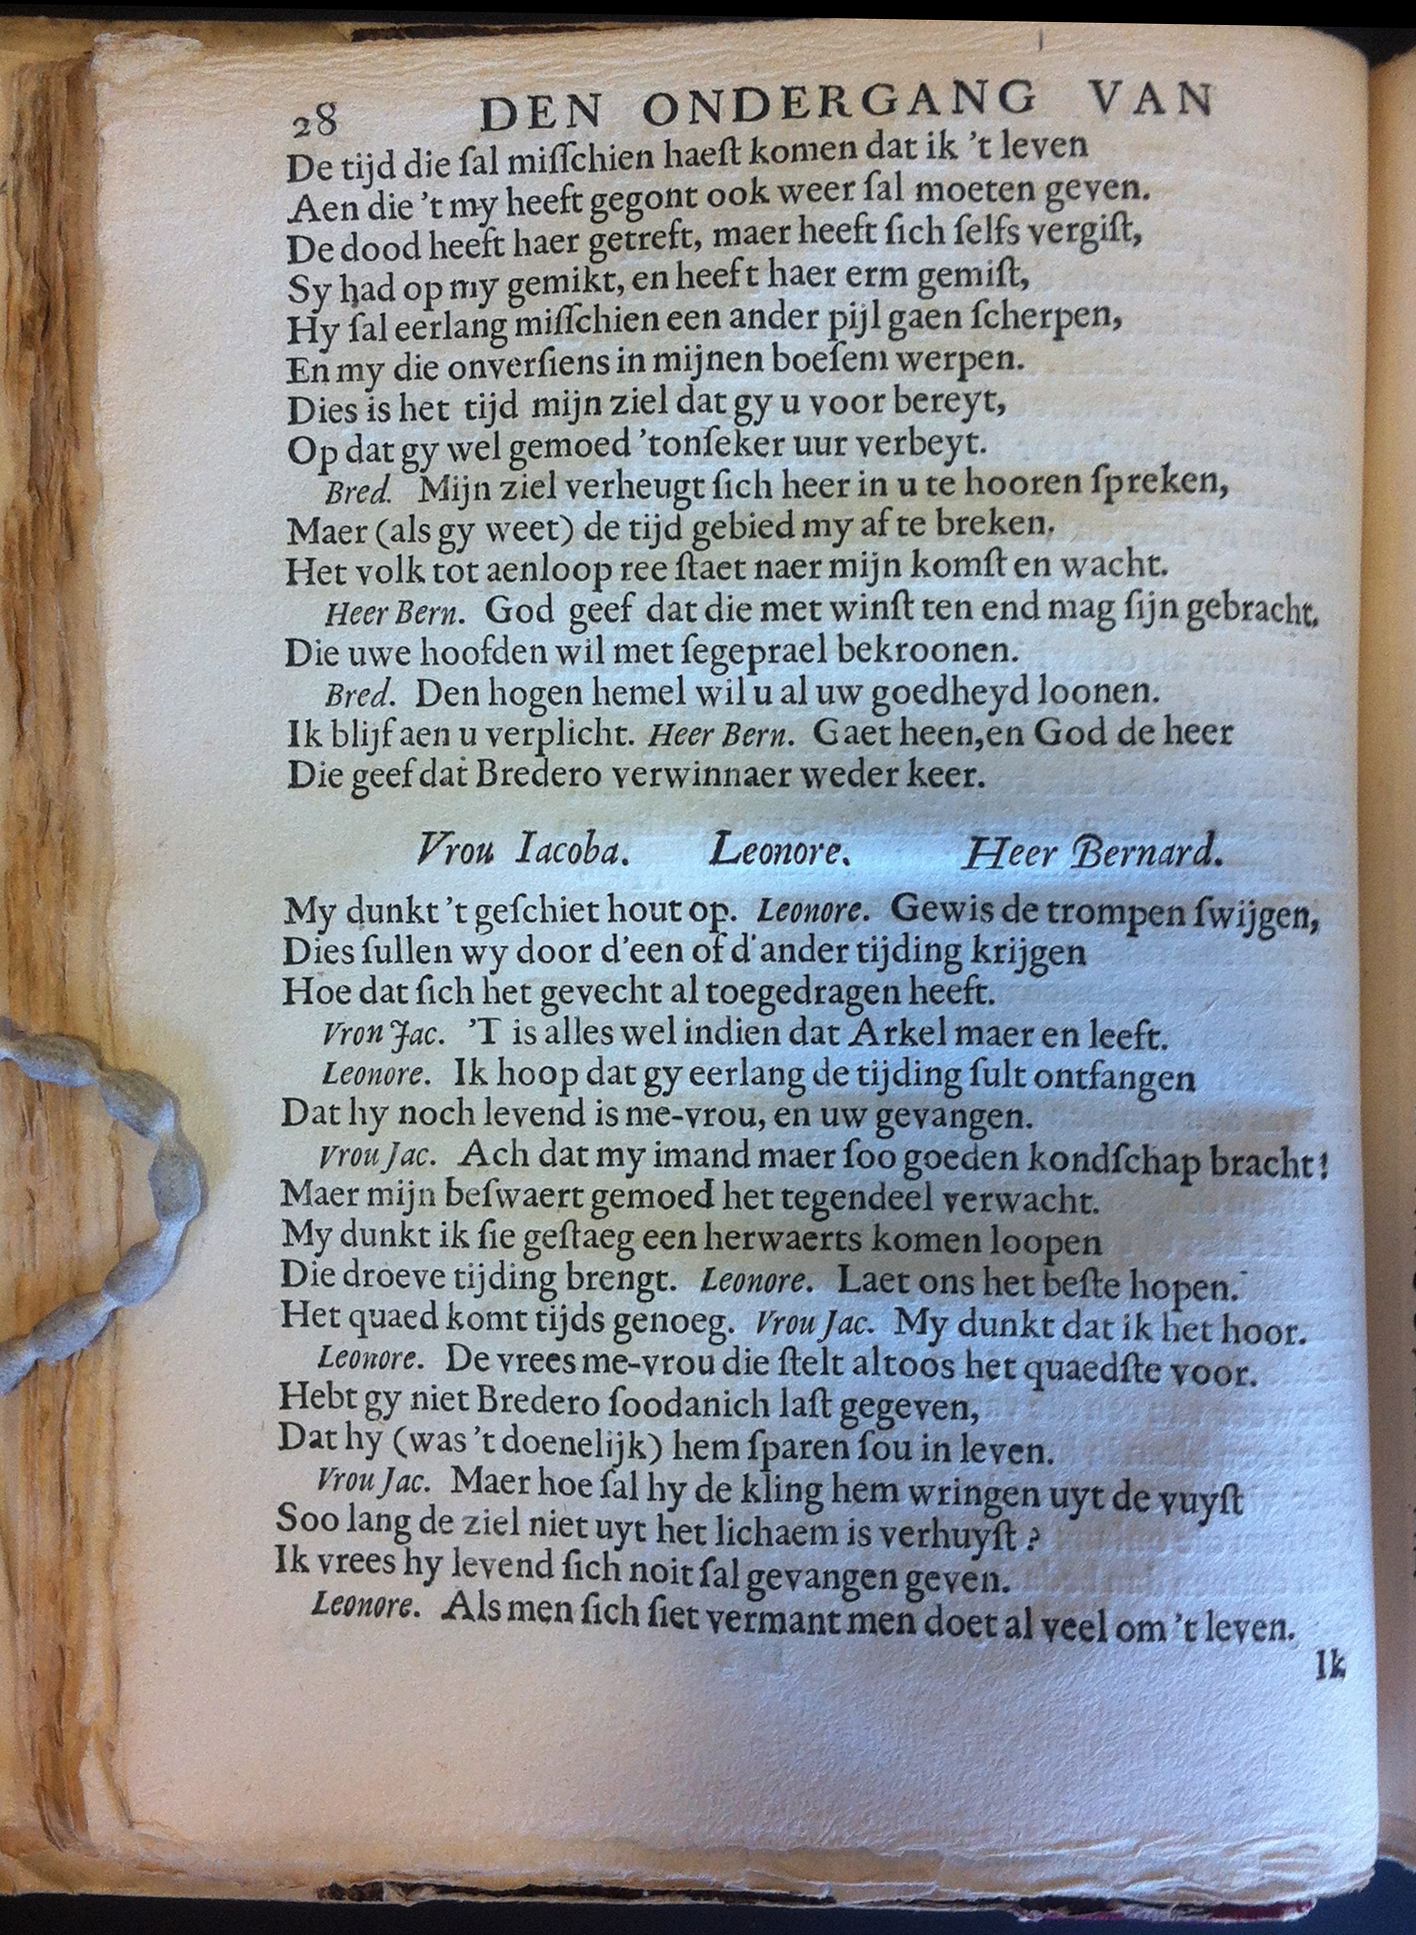 28 DEN ONDERGANG VAN
De tijd die ſal miſſchien haeſt komen dat ik 't leven
Aen die 't my heeft gegont ook weer ſal moeten geven.
De dood heeft haer getreft, maer heeft ſich ſelfs vergiſt,
Sy had op my gemikt, en heeft haer erm gemiſt,
Hy ſal eerlang miſſchien een ander pijl gaen ſcherpen,
En my die onverſiens in mijnen boeſem werpen.
Dies is het tijd mijn ziel dat gy u voor bereyt,
Op dat gy wel gemoed 'tonſeker uur verbeyt.
Bred. Mijn ziel verheugt ſich heer in u te hooren ſpreken,
Maer (als gy weet) de tijd gebied my af te breken.
Het volk tot aenloop ree ſtaet naer mijn komſt en wacht.
Heer Bern. God geef dat die met winſt ten end mag ſijn gebracht.
Die uwe hoofden wil met ſegeprael bekroonen.
Bred. Den hogen hemel wil u al uw goedheyd loonen.
Ik blijf aen u verplicht. Heer Bern. Gaet heen,en God de heer
Die geef dat Bredero verwinnaer weder keer.
Vrou Iacoba. Leonore. Heer Bernard.
My dunkt 't geſchiet hout op. Leonore. Gewis de trompen ſwijgen,
Dies ſullen wy door d'een of d'ander tijding krijgen
Hoe dat ſich het gevecht al toegedragen heeft.
Vron Jac. 'T is alles wel indien dat Arkel maer en leeft.
Leonore. Ik hoop dat gy eerlang de tijding ſult ontfangen
Dat hy noch levend is me-vrou, en uw gevangen.
Vrou Jac. Ach dat my imand maer ſoo goeden kondſchap bracht!
Maer mijn beſwaert gemoed het tegendeel verwacht.
My dunkt ik ſie geſtaeg een herwaerts komen loopen
Die droeve tijding brengt. Leonore. Laet ons het beſte hopen.
Het quaed komt tijds genoeg. Vrou Jac. My dunkt dat ik het hoor.
Leonore. De vrees me-vrou die ſtelt altoos het quaedſte voor.
Hebt gy niet Bredero ſoodanich laſt gegeven,
Dat hy (was 't doenelijk) hem ſparen ſou in leven.
Vrou Jac. Maer hoe ſal hy de kling hem wringen uyt de vuyſt
Soo lang de ziel niet uyt het lichaem is verhuyſt?
Ik vrees hy levend ſich noit ſal gevangen geven.
Leonore. Als men ſich ſiet vermant men doet al veel om 't leven.
Ik